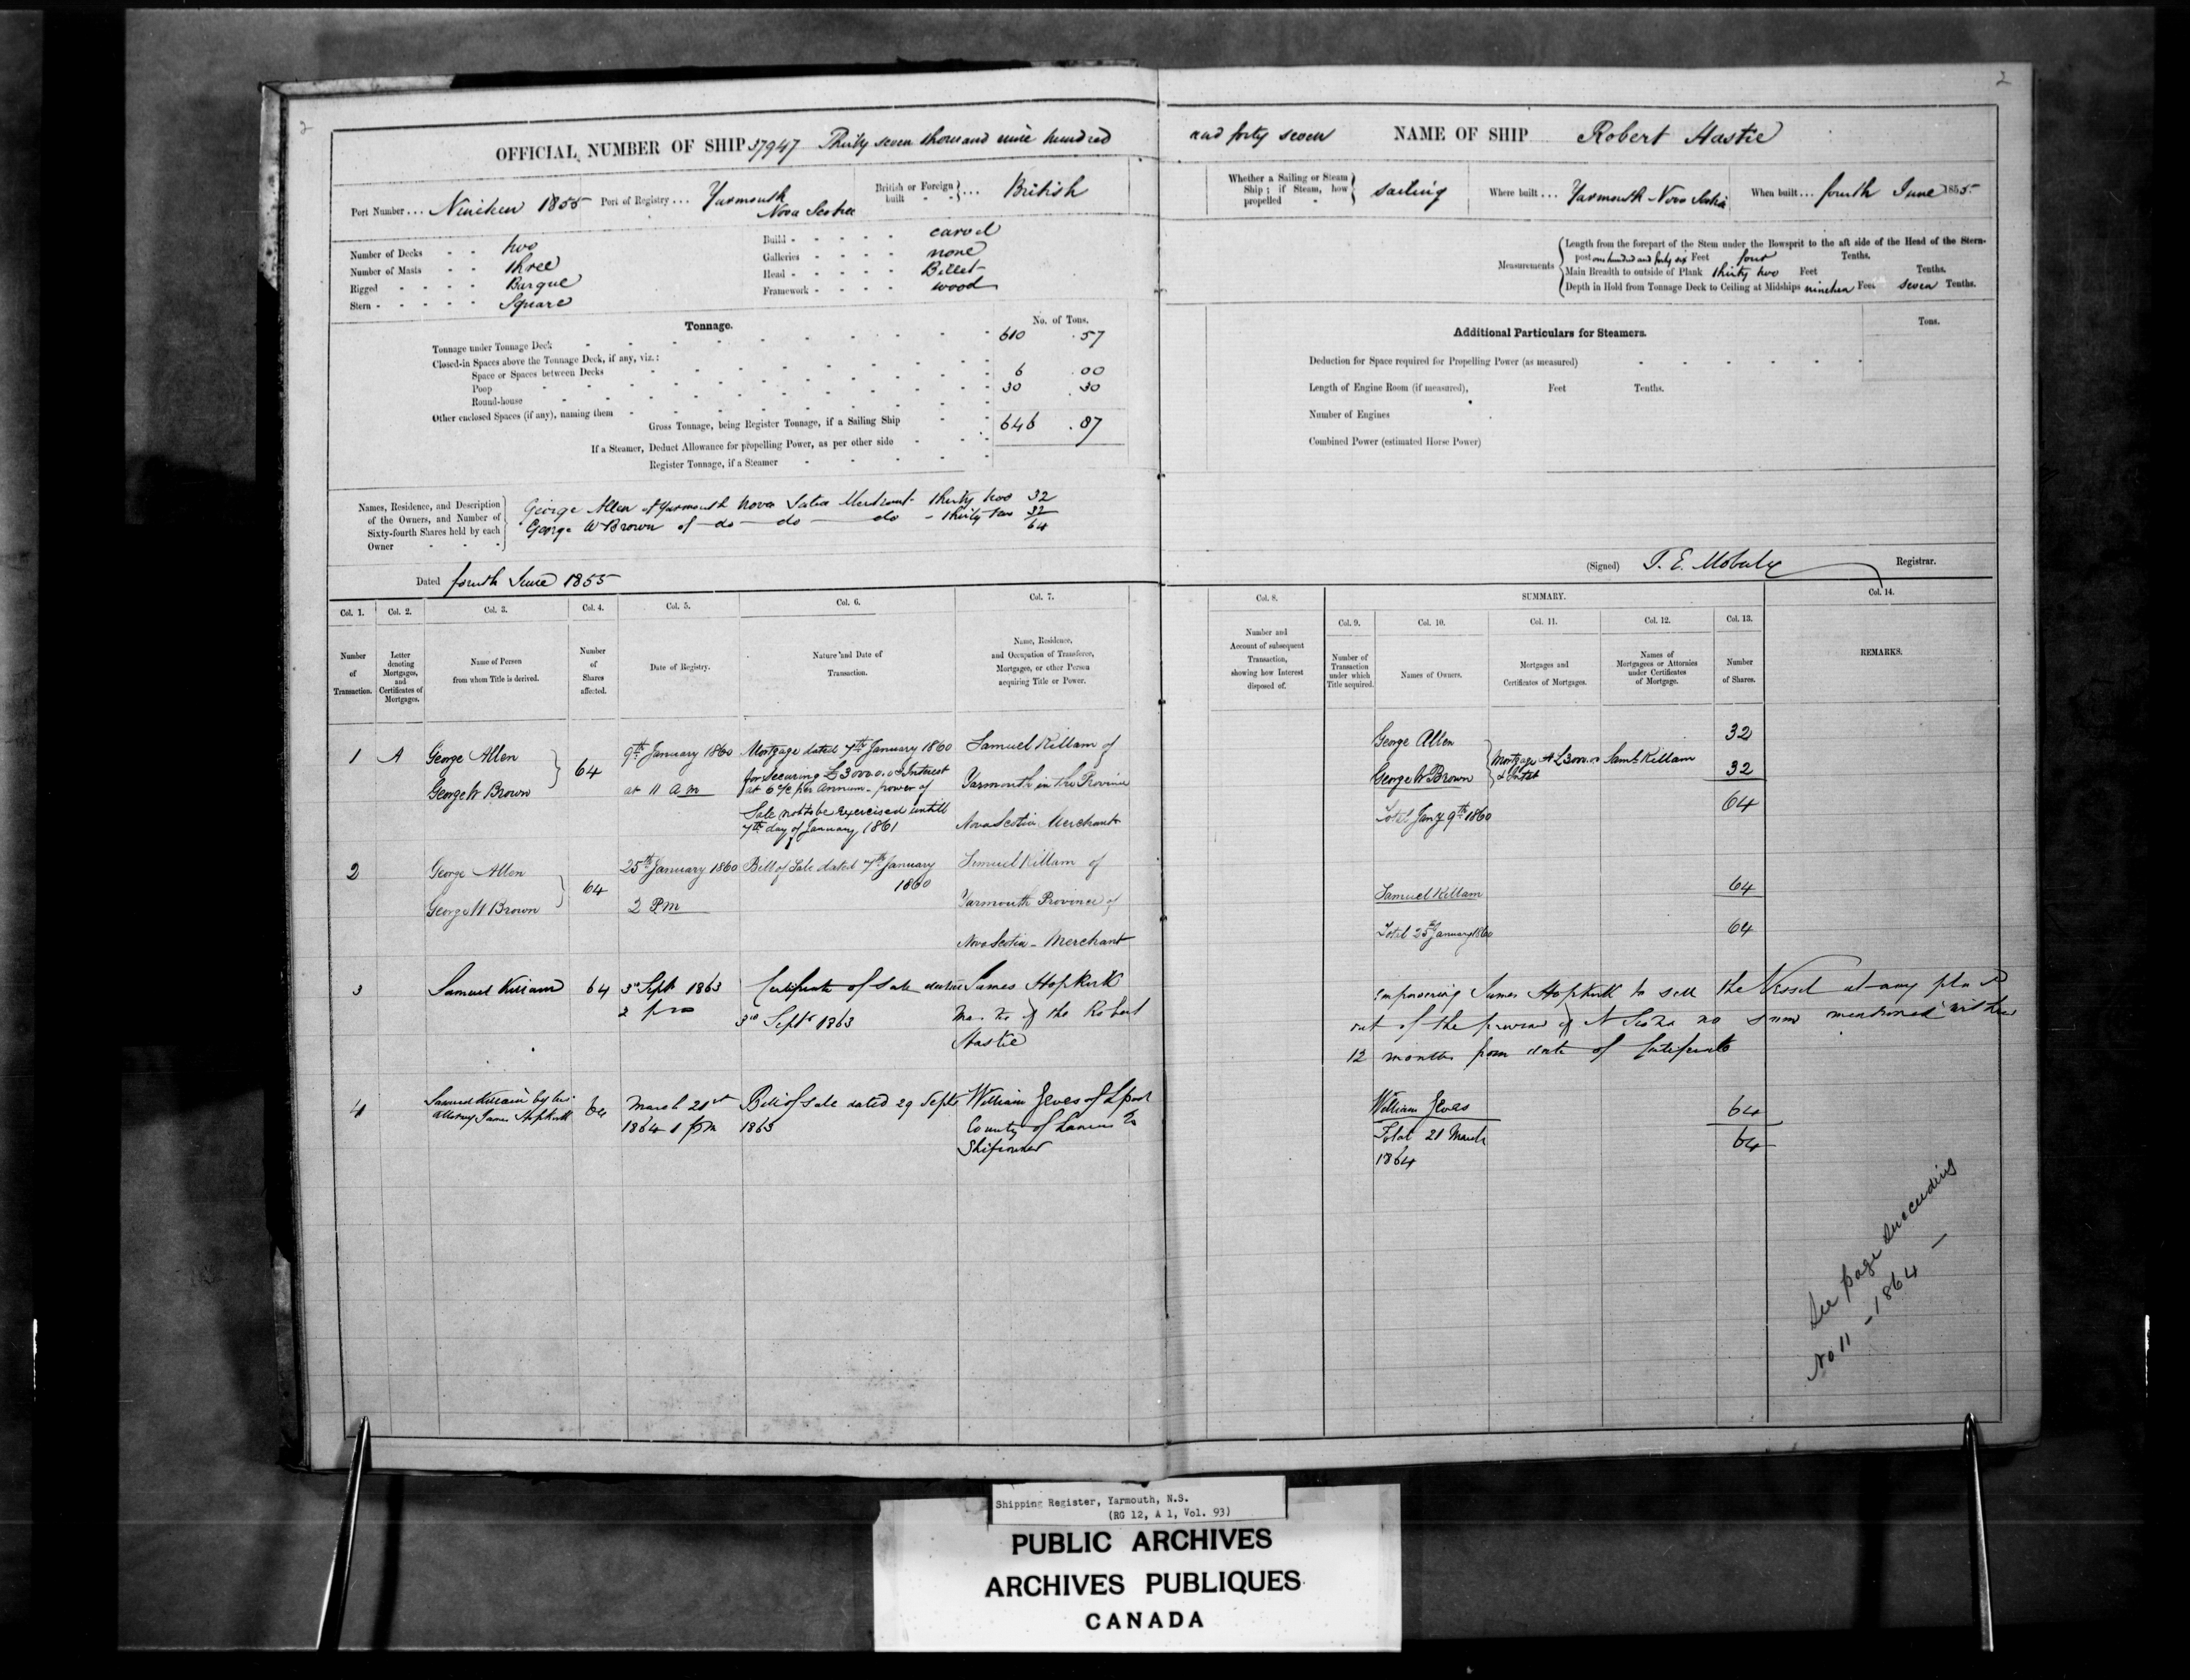 2
2
OFFICIAL NUMBER OF SHIP 37947 Thirty seven thousand nine hundred and forty seven NAME OF SHIP Robert Hastie
Port Number ... Nineteen 1855 Port of Registry ... Yarmouth Nova Scotia British or Foreign built ... British
Whether a Sailing or Steam Ship; if Steam, how propelled sailing Where built ... Yarmouth Nova Scotia When built ... fourth June 1855
Number of Decks - - two
Number of Masts - - three
Rigged - - - - Barque
Stern - - - - Square
Build - - - - - carvel
Galleries - - - - none
Head - - - - - Billet
Framework - - - - wood
Measurements
Length from the forepart of the Stem under the Bowsprit to the aft side of the Head of the Stern-
post one hundred and forty six Feet four Tenths.
Main Breadth to outside of Plank thirty two Feet Tenths.
Depth in Hold from Tonnage Deck to Ceiling at Midships nineteen Feet seven Tenths.
Tonnage. No. of Tons.
Tonnage under Tonnage Deck 610 .57
Closed-in Spaces above the Tonnage Deck, if any, viz.:
Space or Spaces between Decks 6 .00
Poop 30 .30
Round-house
Other enclosed Spaces (if any), naming them
Gross Tonnage, being Register Tonnage, if a Sailing Ship 646 .87
If a Steamer, Deduct Allowance for propelling Power, as per other side
Register Tonnage, if a Steamer
Additional Particulars for Steamers. Tons.
Deduction for Space required for Propelling Power (as measured)
Length of Engine Room (if measured), Feet Tenths.
Number of Engines
Combined Power (estimated Horse Power)
Names, Residence, and Description
of the Owners, and Number of
Sixty-fourth Shares held by each
Owner
George Allen of Yarmouth Nova Scotia Merchant thirty two 32
George W Brown of do do do - thirty two 32
64
Dated fourth June 1855
(Signed) Registrar.
Col. 1. Col. 2. Col. 3. Col. 4. Col. 5. Col. 6. Col. 7. Col. 8. SUMMARY. Col. 14.
Col. 9. Col. 10. Col. 11. Col. 12. Col. 13.
Number of Transaction.
Letter denoting Mortgages, and Certificates of Mortgages.
Name of Person from whom Title is derived.
Number of Shares affected.
Date of Registry.
Nature and Date of Transaction.
Name, Residence, and Occupation of Transferee, Mortgagee, or other Person acquiring Title or Power.
Number and Account of subsequent Transaction, showing how Interest disposed of.
Number of Transaction under which Title acquired.
Names of Owners.
Mortgages and Certificates of Mortgages.
Names of Mortgagees or Attornies under Certificates of Mortgage.
Number of Shares.
REMARKS.
1 A George Allen
George W Brown
64
9th January 1860
at 11 a m
Mortgage dated 7th January 1860
for Securing £3000.0.0 & Interest
at 6 % per Annum - power of
Sale not to be exercised untill
7th day of January 1861
Samuel Killam of
Yarmouth in the Province
Nova Scotia Merchant
George Allen 32
George W Brown 32
Mortgage A £3000
Saml Killam
64
Total Jany 9th 1860
2 George Allen
George W Brown
64
25th January 1860
2 Pm
Bill of Sale dated 7th January
1860
Samuel Killam of
Yarmouth Province of
Nova Scotia - Merchant
Samuel Killam 64
Total 25th January 1860 64
3 Samuel Killam 64
3d Sept 1863
2 pm
Certificate of Sale dated
3rd Sept 1863
James Hopkirk
of the Robert
Hastie
Empowering James Hopkirk to sell the Vessel at any place
out of the province of N Scotia no sum mentioned within
12 months from date of Certificate
4 Samuel Killam by his
attorney James Hopkirk
64
March 21st
1864 1 pm
Bill of Sale dated 29 Sept
1863
William Jeves of Lpool
County of
Shipowner
William Jeves 64
Total 21 March
1864
64
See page succeeding
No 11 - 1864 -
Shipping Register, Yarmouth, N.S.
(RG 12, A 1, Vol. 93)
PUBLIC ARCHIVES
ARCHIVES PUBLIQUES
CANADA